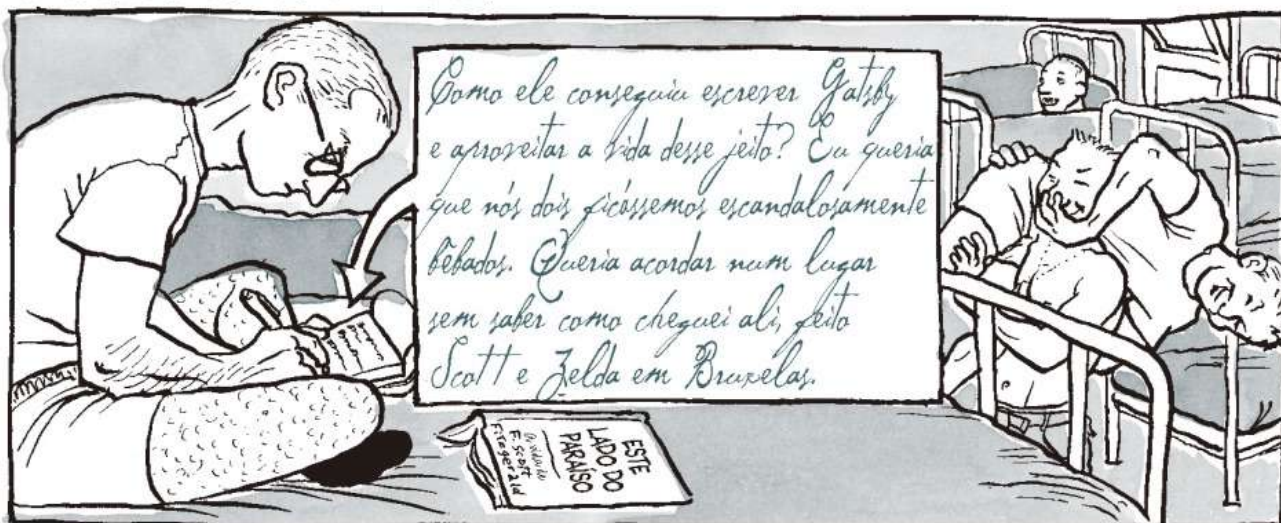 Como ele conseguiu escrever Gatsby
e aproveitar a vida desse jeito? Eu queria
que nós dois ficássemos escandalosamente
bêbados. Queria acordar num lugar
sem saber como cheguei ali, feito
Scott e Zelda em Bruxelas.
ESTE
LADO DO
PARAÍSO
A vida de
F. Scott
Fitzgerald